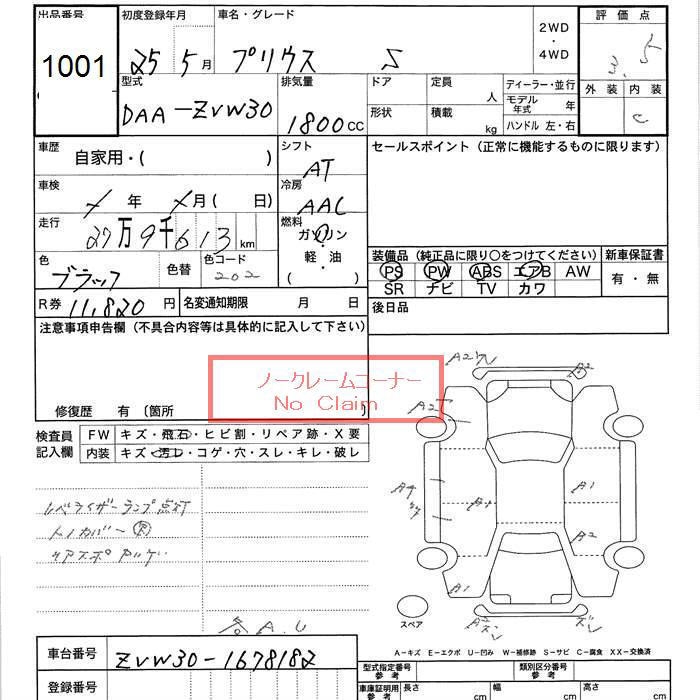 出品番号 初度登録年月 車名・グレード 2WD・4WD 評価点
1001 25 5月 プリウス S 3.5
型式 排気量 ドア 定員 人 ディーラー・並行 外装 内装
DAA-ZVW30 1800CC 形状 積載 kg モデル年式 年 C
ハンドル 左・右
車歴 自家用・( ) シフト AT セールスポイント (正常に機能するものに限ります)
車検 年 月 ( 日) 冷房 AAC
走行 27万9千613km 燃料 ガソリン
軽・油
( )
色 ブラック 色替 色コード 202
装備品 (純正品に限り○をつけてください) 新車保証書
PS PW ABS エアB AW 有・無
SR ナビ TV カワ
R券 11,820円 名変通知期限 月 日 後日品
注意事項申告欄 (不具合内容等は具体的に記入して下さい)
ノークレームコーナー
No Claim
修復歴 有 (箇所 )
検査員記入欄 FW キズ・飛石・ヒビ割・リペア跡・X要
内装 キズ・汚レ・コゲ・穴・スレ・キレ・破レ
レベライザーランプ点灯
トノカバー欠
リアスポ
A.U
A2 A2
A2
A4 A1
A2
A1
スペア
A-キズ E-エクボ U-凹み W-補修跡 S-サビ C-腐食 XX-交換済
車台番号 ZVW30-1678182
登録番号
型式指定番号 類別区分番号
車庫証明用 長さ cm 幅 cm 高さ cm